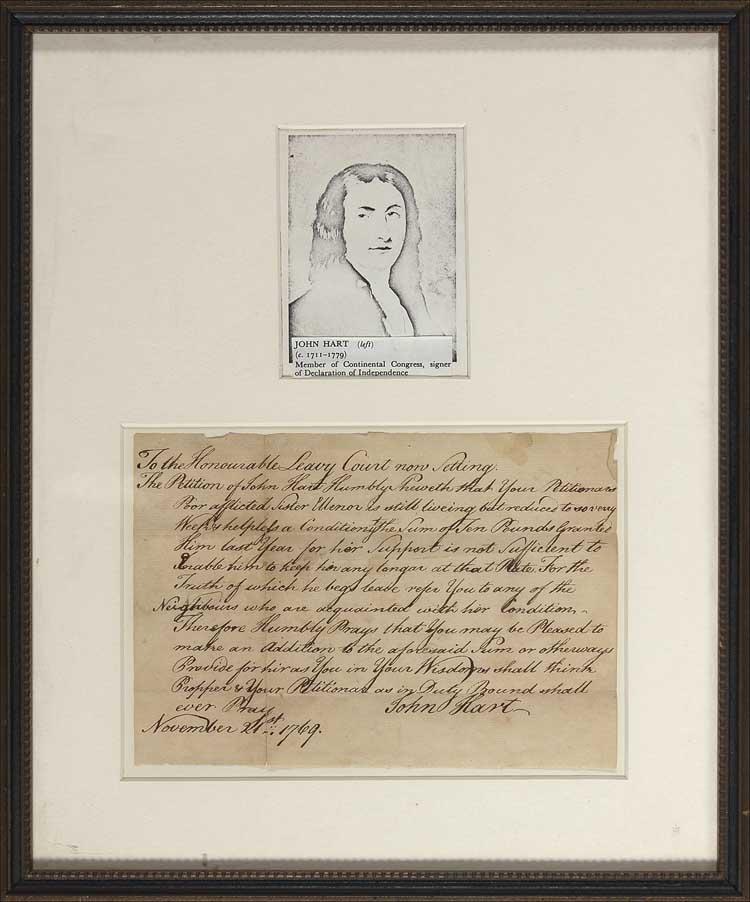 JOHN HART (left)
(c. 1711–1779)
Member of Continental Congress, signer
of Declaration of Independence
To the Honourable Leavy Court now Setting.
The Petition of John Hart Humbly Sheweth that Your Petitionars
Poor afflicted Sister Ellenor is still liveing but reduced to so very
Week & helpless a Condition the Sum of Ten Pounds Granted
Him last Year for her Support is not Sufficient to
Enable him to keep her any longar at that Rate. For the
Truth of which he begs leave refer You to any of the
Neighbours who are acquainted with her Condition,
Therefore Humbly Prays that You may be Pleased to
make an Addition to the aforesaid Sum or otherways
Provide for hir as You in Your Wisdom shall think
Propper & Your Petitionar as in Duty Bound shall
ever Pray John Hart
November 21st: 1769.